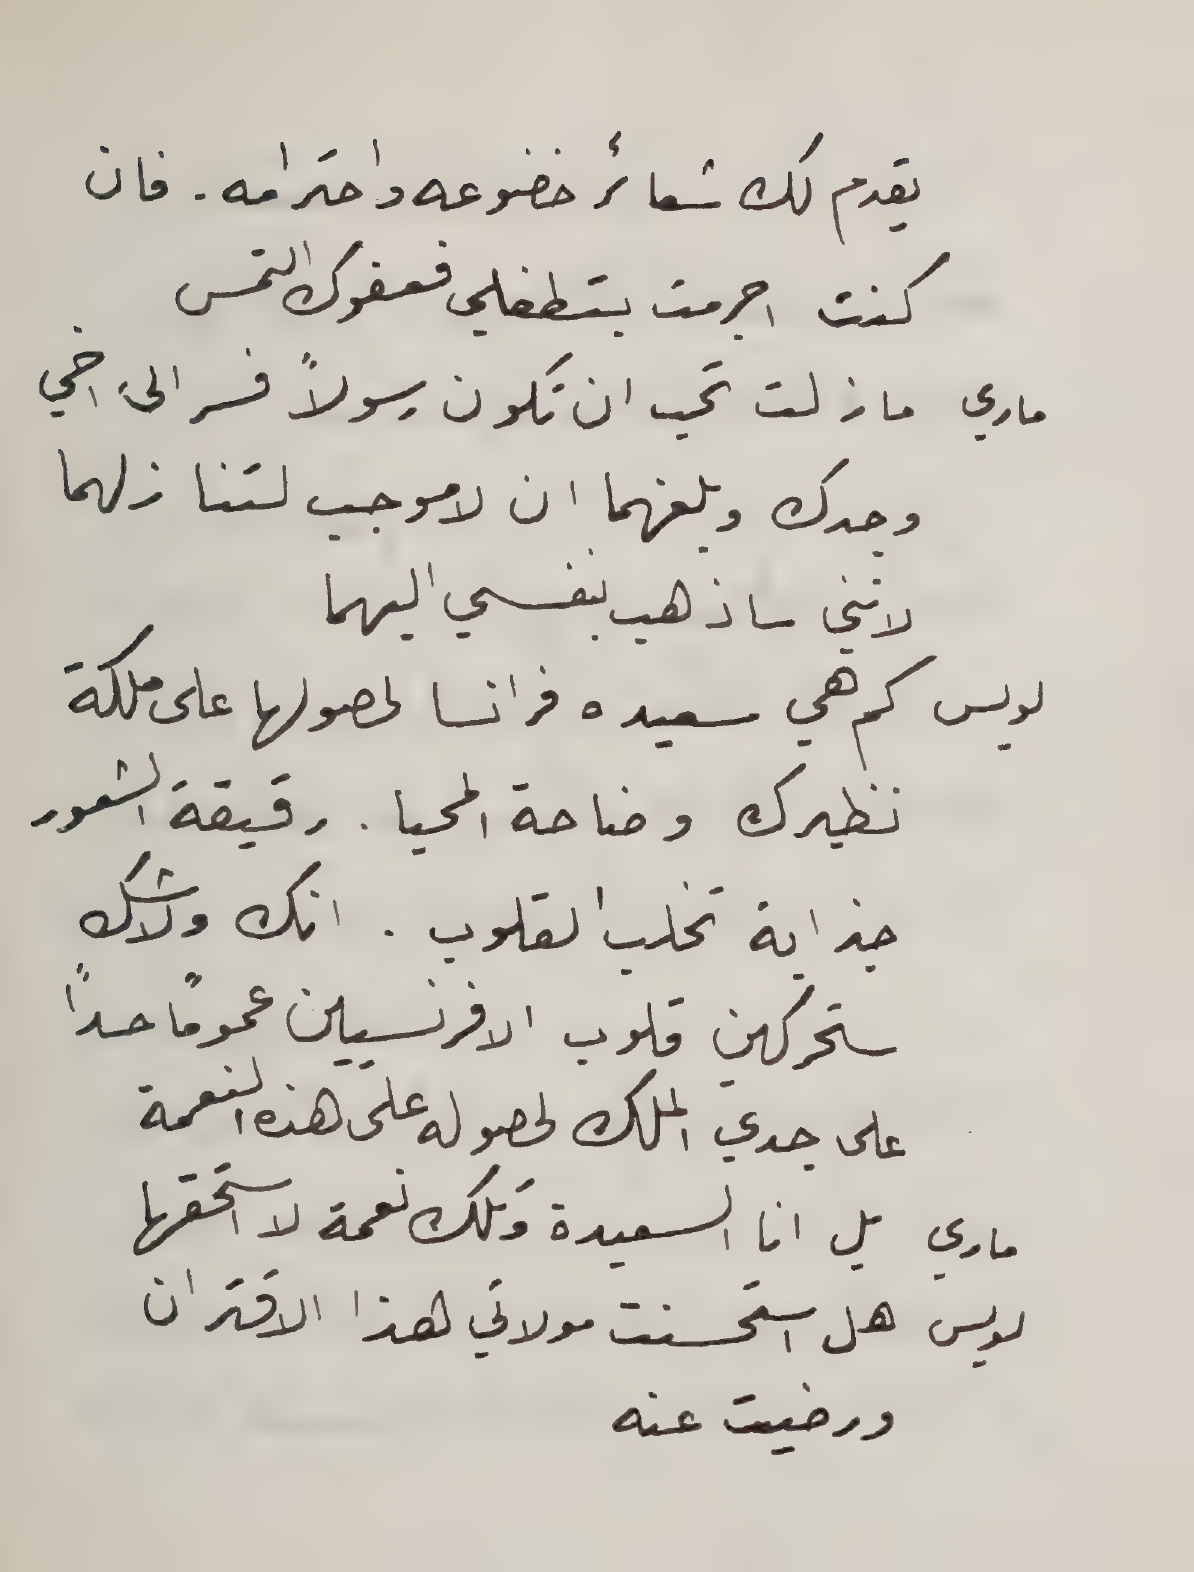 يقدم لك شعائر خضوعه واحترامه . فان
كنت اجرمت بتطفلي فعفوك التمس
ماري ما زلت تحب ان تكون رسولاً فسر الى اخي
وجدك وبلغهما ان لا موجب لتنازلهما
لانني ساذهب بنفسي اليهما
لويس كم هي سعيده فرانسا لحصولها على ملكة
نظيرك وضاحة المحيا . رقيقة الشعور
جذابة تخلب القلوب . انك ولا شك
ستحركين قلوب الافرنسيين عموماً حسداً
على جدي الملك لحصوله على هذه النعمة
ماري بل انا السعيدة وتلك نعمة لا استحقها
لويس هل استحسنت مولاتي لهذا الاقتران
ورضيت عنه